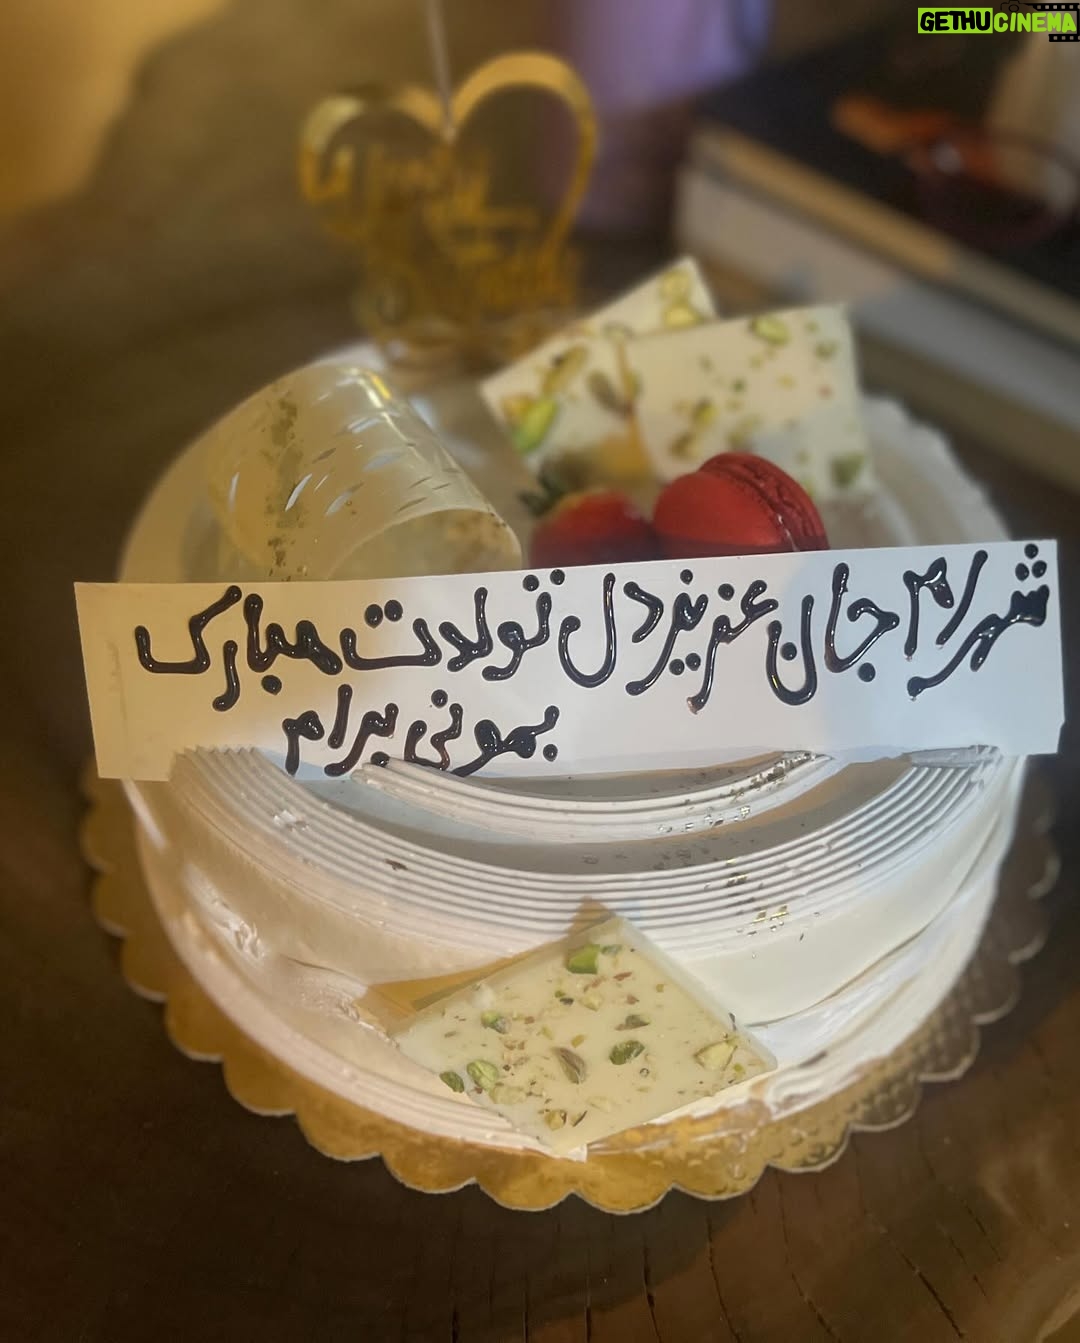 GETHUCINEMA
شهرام جان عزیز دل تولدت مبارک
بمونی برام